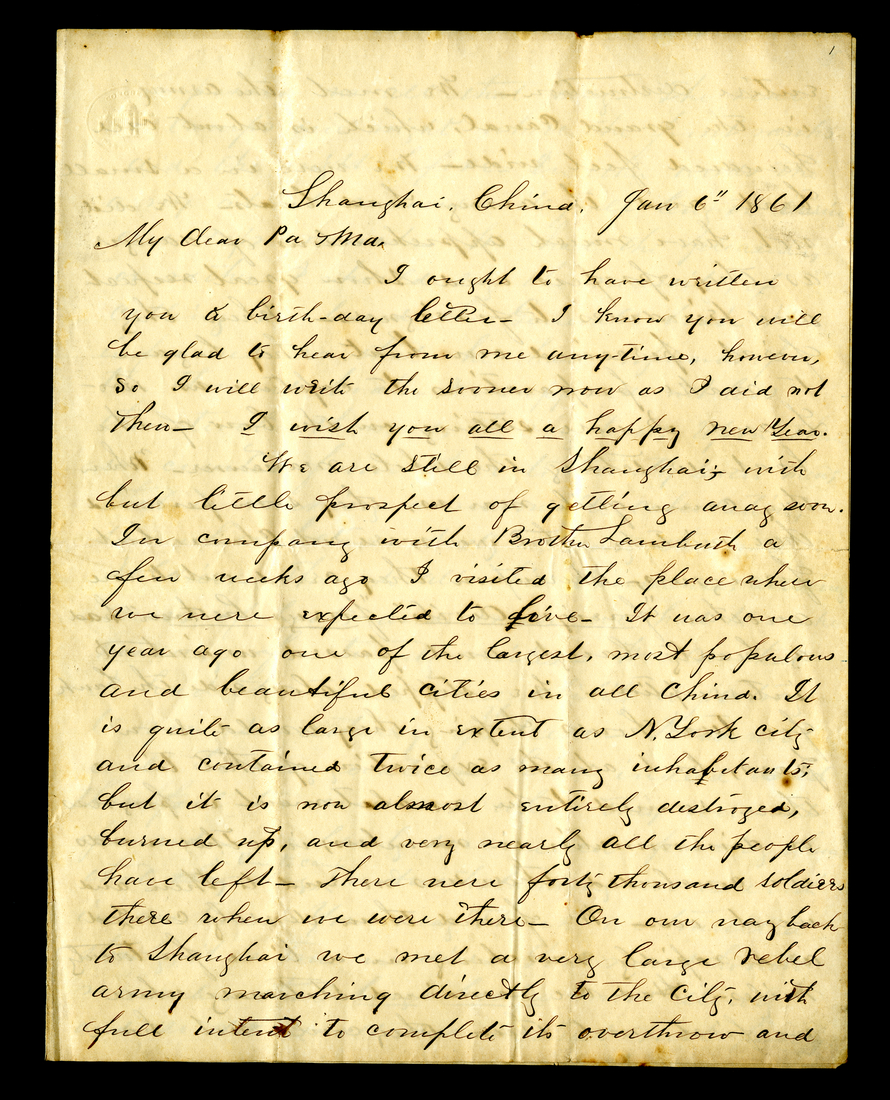 1
Shanghai, China, Jan 6" 1861
My dear Pa & Ma,
I ought to have written
you a birth-day letter- I know you will
be glad to hear from me any-time, however,
so I will write the sooner now as I did not
then- I wish you all a happy new Year.
We are still in Shanghai; with
but little prospect of getting away soon.
In company with Brother Lambuth a
few weeks ago I visited the place where
we were expected to live- It was one
year ago one of the largest, most populous
and beautiful cities in all China. It
is quite as large in extent as N. York city
and contained twice as many inhabitants;
but it is now almost entirely destroyed,
burned up, and very nearly all the people
have left- There were forty thousand soldiers
there when we were there- On our way back
to Shanghai we met a very large rebel
army marching directly to the city, with
full intent to complete its overthrow and